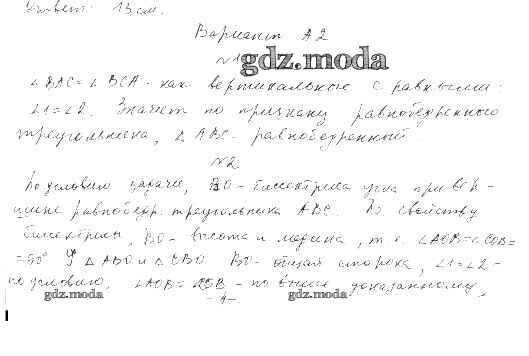 Ответ: 13 см.
Вариант А2
№1
gdz.moda
∠BAC=∠BCA - как вертикальные с равными:
∠1=∠2. Значит по признаку равнобедренного
треугольника, △ABC - равнобедренный
№2
По условию задачи, BO - биссектриса угла при вер-
шине равнобедр. треугольника ABC. По свойству
биссектрисы, BO - высота и медиана, т.е. ∠AOB=∠COB=
=90° У △ABO и △CBO BO - общая сторона, ∠1=∠2 -
по условию, ∠AOB=∠COB - по выше доказанному,
gdz.moda
- 4 -
gdz.moda